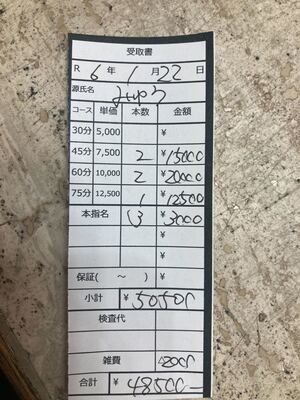 受取書
R 6 年 1 月 22 日
源氏名
コース 単価 本数 金額
30分 5,000 ¥
45分 7,500 2 ¥15000
60分 10,000 2 ¥20000
75分 12,500 1 ¥12500
本指名 3 ¥3000
¥
¥
保証( ～ ) ¥
小計 ¥50500
検査代
雑費 △2000
合計 ¥ 48500-